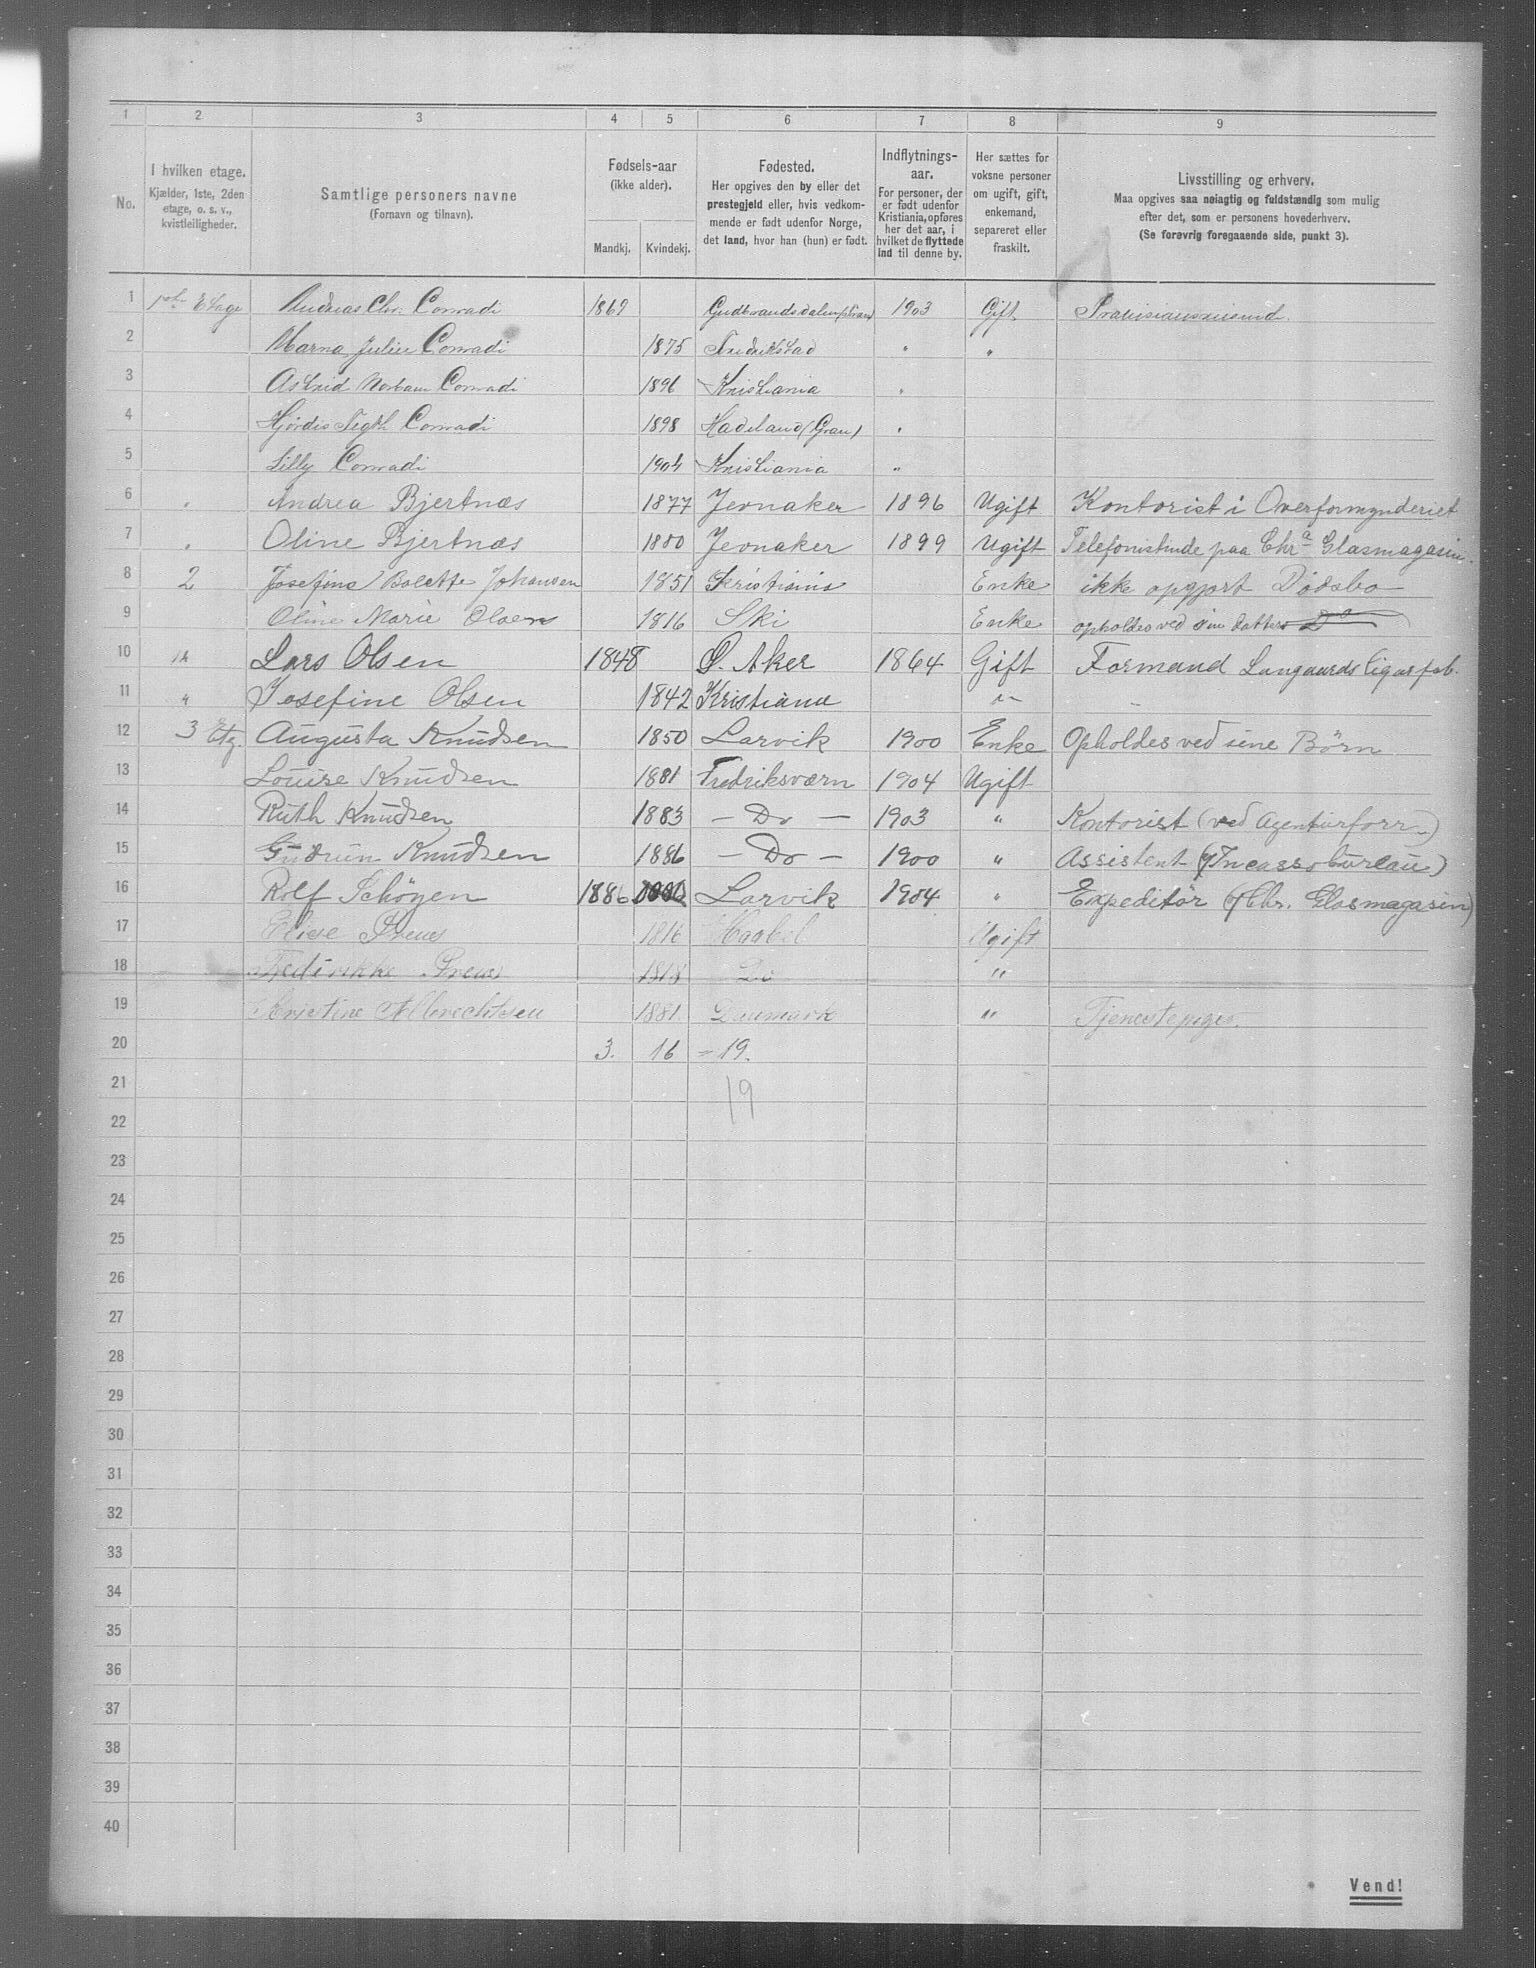 1 2 3 4 5 6 7 8 9
No.
I hvilken etage.
Kjælder, 1ste, 2den
etage, o. s. v.,
kvistleiligheder.
Samtlige personers navne
(Fornavn og tilnavn).
Fødsels-aar
(ikke alder).
Mandkj. Kvindekj.
Fødested.
Her opgives den by eller det
prestegjeld eller, hvis vedkom-
mende er født udenfor Norge,
det land, hvor han (hun) er født.
Indflytnings-
aar.
For personer, der
er født udenfor
Kristiania, opføres
her det aar, i
hvilket de flyttede
ind til denne by.
Her sættes for
voksne personer
om ugift, gift,
enkemand,
separeret eller
fraskilt.
Livsstilling og erhverv.
Maa opgives saa nøiagtig og fuldstændig som mulig
efter det, som er personens hovederhverv.
(Se forøvrig foregaaende side, punkt 3).
1 1ste Etage Andreas Chr. Conradi 1869 1903 Gift
2 Marna Julie Conradi 1875 Fredrikstad " "
3 Astrid Conradi 1896 Kristiania "
4 Hjördis Conradi 1898 Hadeland (Gran) "
5 Lilly Conradi 1904 Kristiania "
6 " Andrea Bjertnæs 1877 Jevnaker 1896 Ugift Kontorist i Overformynderiet
7 " Oline Bjertnæs 1880 Jevnaker 1899 Ugift Telefonistinde paa Chr.a Glasmagasin.
8 2 Josefine Bolette Johansen 1851 Kristiania Enke ikke opgjort Dødsbo
9 Oline Marie Olsen 1816 Ski Enke opholdes ved sin datter Do
10 Lars Olsen 1848 Ø. Aker 1864 Gift Formand Langaards Cigarfab.
11 " Josefine Olsen 1842 Kristiania "
12 3 Etg. Augusta Knudsen 1850 Larvik 1900 Enke Opholdes ved sine Børn
13 Louise Knudsen 1881 Fredriksværn 1904 Ugift
14 Ruth Knudsen 1883 — Do — 1903 " Kontorist (ved Agenturforr.)
15 Gudrun Knudsen 1886 — Do — 1900 " Assistent (Incassobureau)
16 Rolf Schöyen 1886 Larvik 1904 " Expeditör (Chr. Glasmagasin)
17 Elise 1816 Ugift
18 Fredrikke 1818 Do "
19 Kristine Albrechtsen 1881 Danmark " Tjenestepige.
20 3. 16 = 19.
21 19
22
23
24
25
26
27
28
29
30
31
32
33
34
35
36
37
38
39
40
Vend!